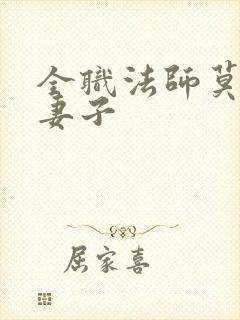 全職法師莫
妻子
屈家喜